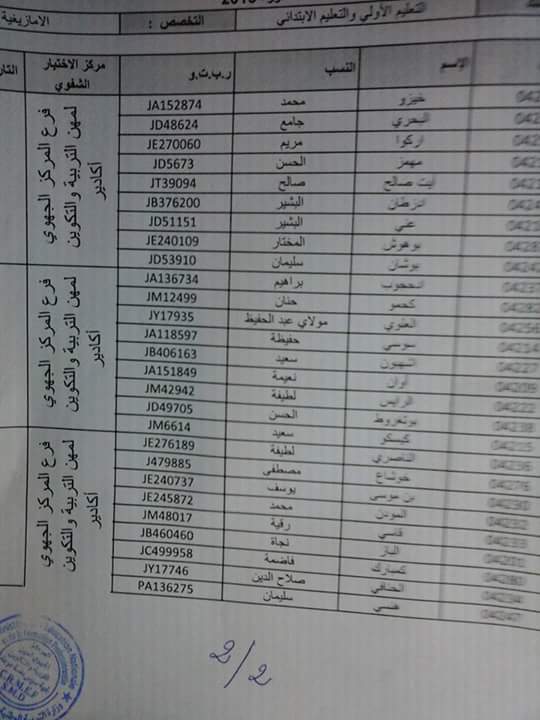 التعليم الأولي والتعليم الابتدائي التخصص : الامازيغية
الإسم النسب ر.ب.ت.و مركز الاختبار الشفوي
خيزو محمد JA152874
البحري جامع JD48624
اركوا مريم JE270060
مهمز الحسن JD5673
أيت صالح صالح JT39094
ادزطان البشير JB376200
علي البشير JD51151
بوهوش المختار JE240109
بوشان سليمان JD53910
فرع المركز الجهوي لمهن التربية والتكوين أكادير
ابراهيم JA136734
كحمو حنان JM12499
العنبري مولاي عبد الحفيظ JY17935
سوسي حفيظة JA118597
سعيد JB406163
أوان نعيمة JA151849
الرايس لطيفة JM42942
بوتعروط الحسن JD49705
كيسكو سعيد JM6614
فرع المركز الجهوي لمهن التربية والتكوين أكادير
الناصري لطيفة JE276189
خوشاع مصطفى J479885
بن موسى يوسف JE240737
المودن محمد JE245872
قاسي رقية JM48017
الباز نجاة JB460460
كمبارك فاضمة JC499958
الحنافي صلاح الدين JY17746
سليمان PA136275
فرع المركز الجهوي لمهن التربية والتكوين أكادير
2/2